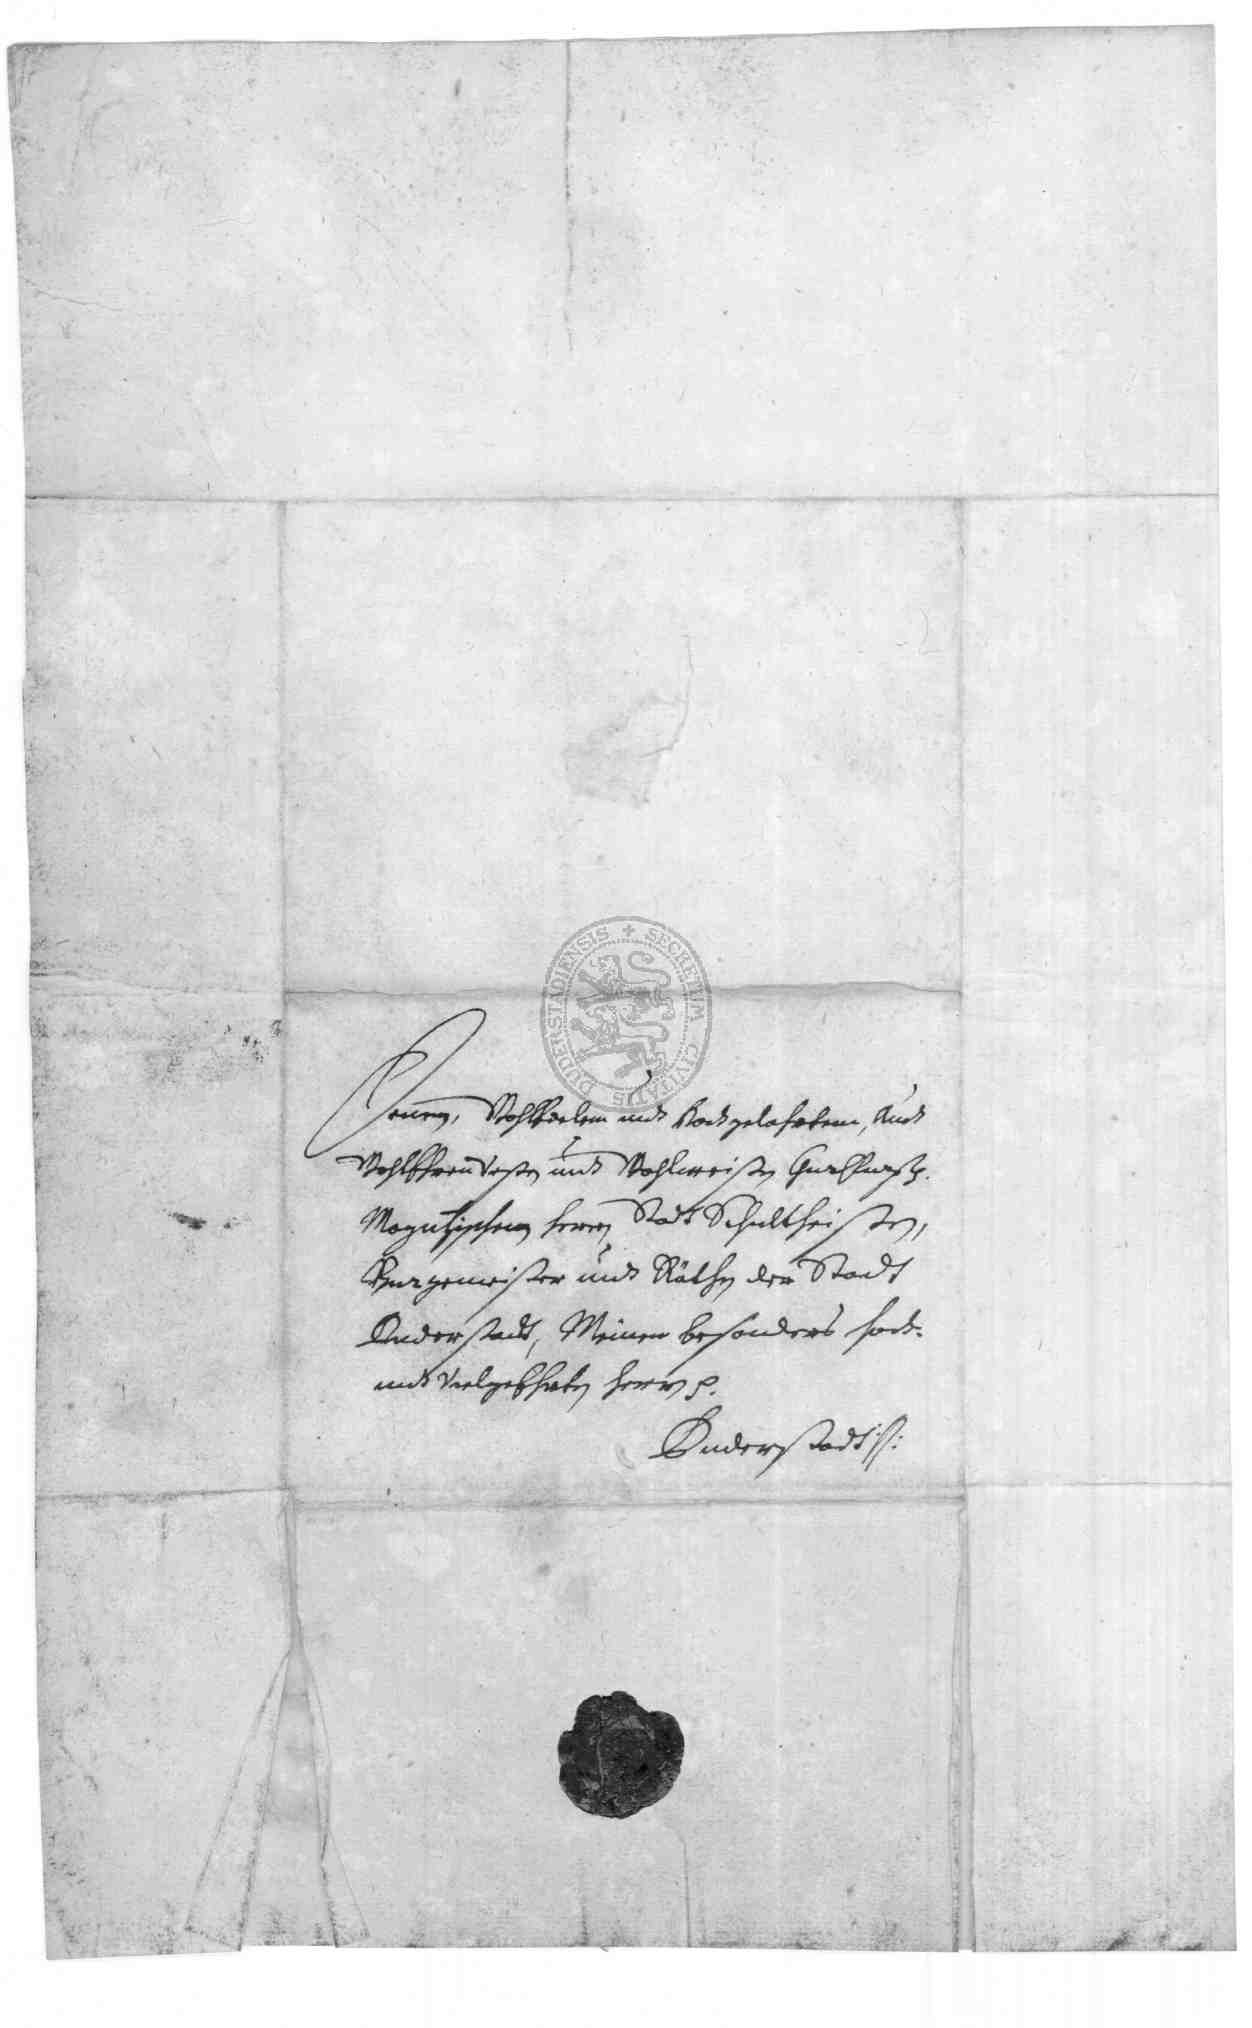 SECRETUM CIVITATIS DUDERSTADIENSIS
Denen, WohlEdelem undt Hochgelahrtem, Auch
WohlEhren Vesten undt Wohlweisen Churfürstl.
Maguntischem Herrn Stadt Schultheissen,
Burgemeister undt Räthen der Stadt
Duderstadt, Meinen besonders hoch-
undt Vielgeehrten Herrn
Duderstadt